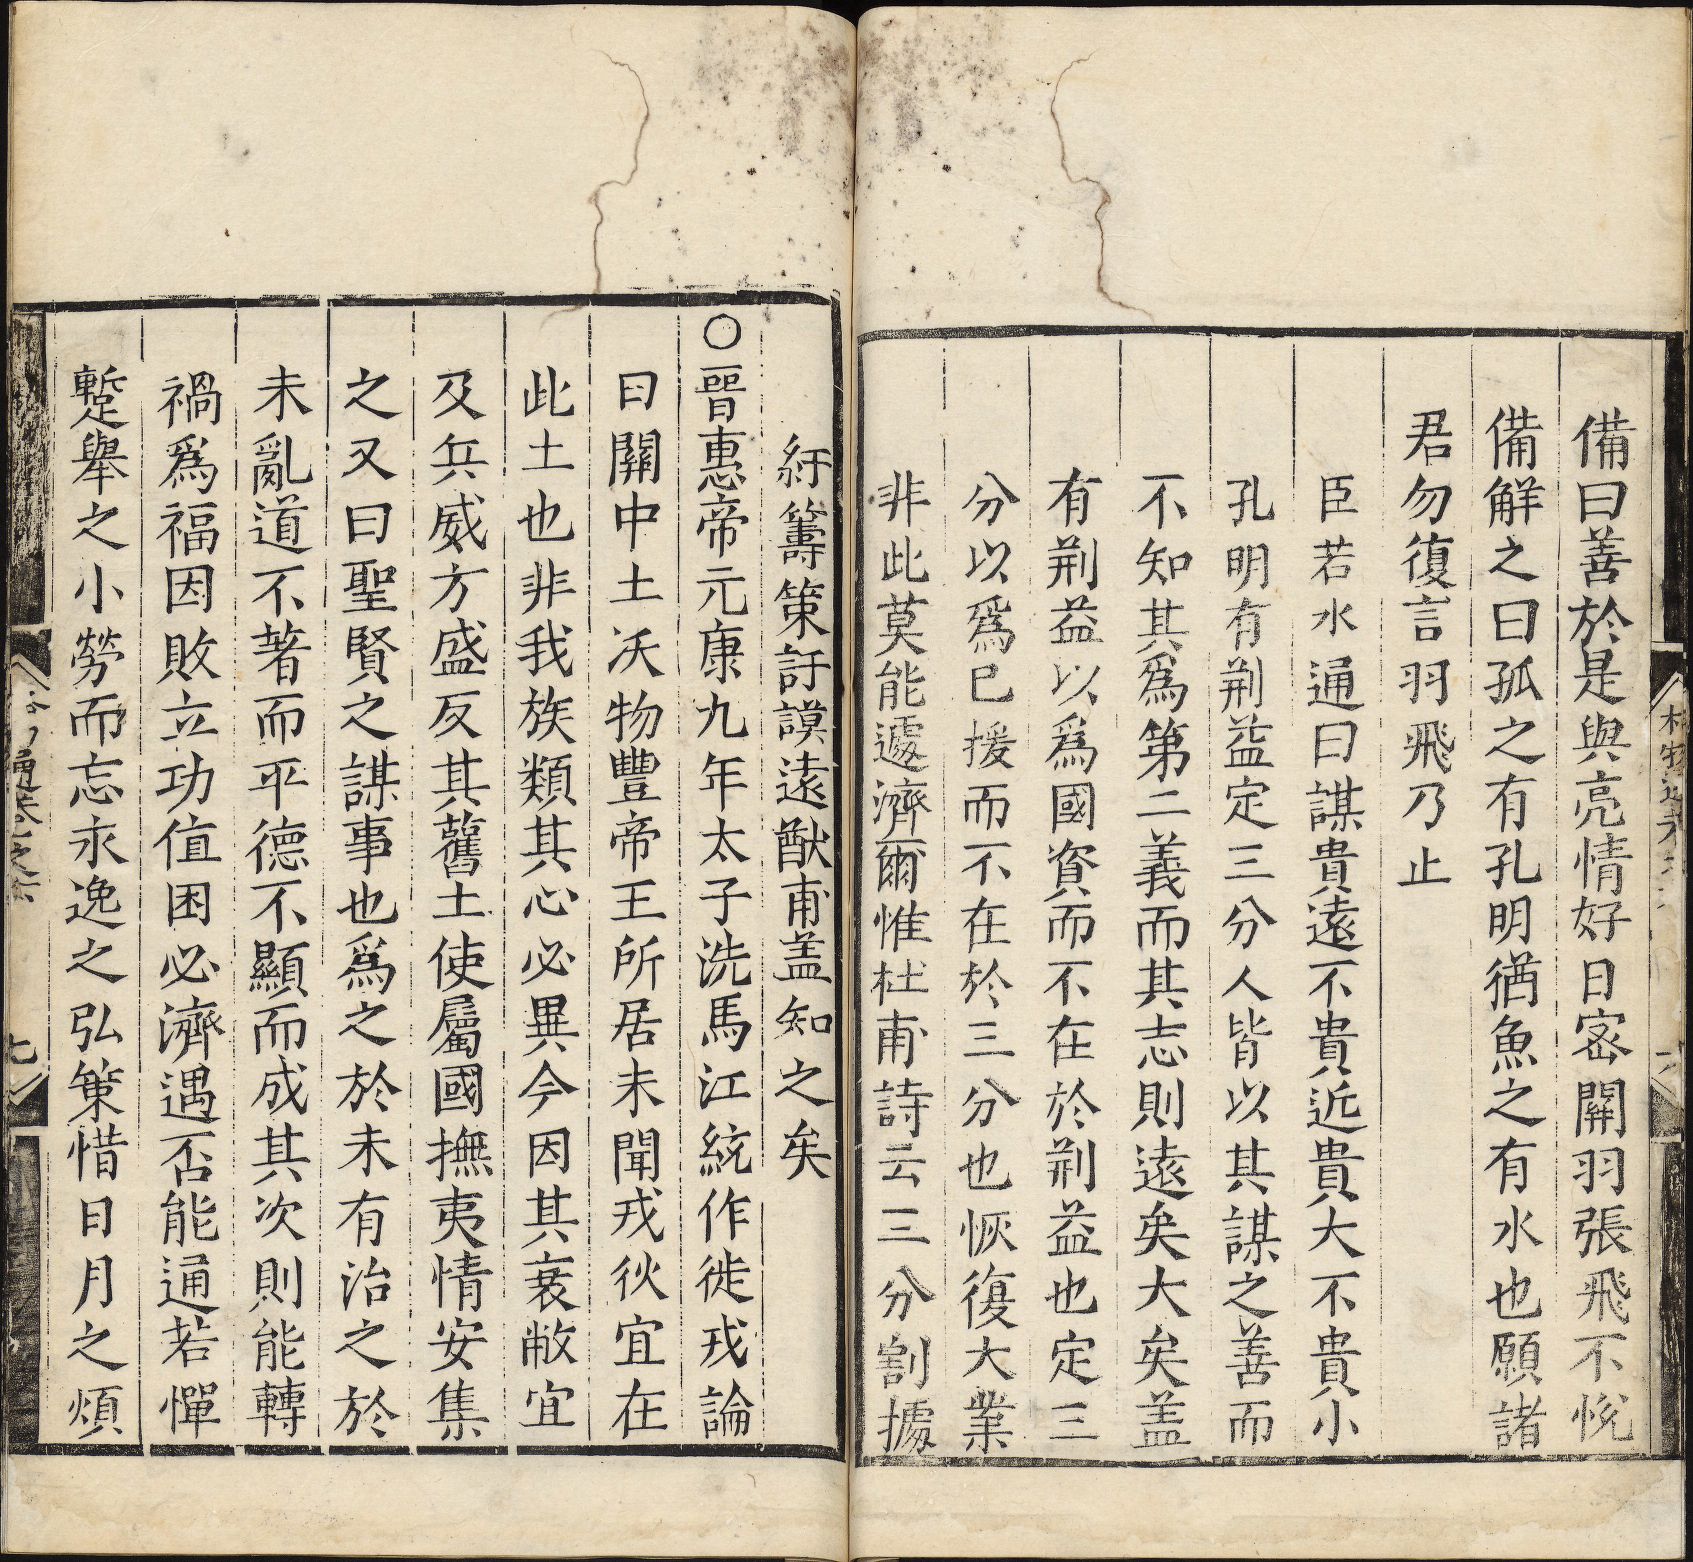 備曰善於是與亮情好日密關羽張飛不悅
備解之曰孤之有孔明猶魚之有水也願諸
君勿復言羽飛乃止
臣若水通曰謀貴遠不貴近貴大不貴小
孔明有荆益定三分人皆以其謀之善而
不知其爲第二義而其志則遠矣大矣盖
有荆益以爲國資而不在於荆益也定三
分以爲已援而不在於三分也恢復大業
非此莫能遽濟爾惟杜甫詩云三分割據
紆籌策訏謨遠猷甫盖知之矣
○晉惠帝元康九年太子洗馬江統作徙戎論
曰關中土沃物豐帝王所居未聞戎狄宜在
此土也非我族類其心必異今因其衰敝宜
及兵威方盛反其舊土使屬國撫夷情安集
之又曰聖賢之謀事也爲之於未有治之於
未亂道不著而平德不顯而成其次則能轉
禍爲福因敗立功值困必濟遇否能通若憚
蹔舉之小勞而忘永逸之弘策惜日月之煩